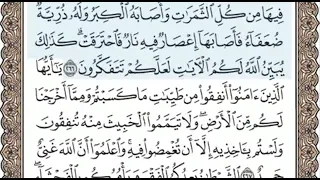 فِيهَا مِن كُلِّ الثَّمَرَاتِ وَأَصَابَهُ الْكِبَرُ وَلَهُ ذُرِّيَّةٌ
ضُعَفَاءُ فَأَصَابَهَا إِعْصَارٌ فِيهِ نَارٌ فَاحْتَرَقَتْ ۗ كَذَٰلِكَ
يُبَيِّنُ اللَّهُ لَكُمُ الْآيَاتِ لَعَلَّكُمْ تَتَفَكَّرُونَ ٢٦٦ يَا أَيُّهَا
الَّذِينَ آمَنُوا أَنفِقُوا مِن طَيِّبَاتِ مَا كَسَبْتُمْ وَمِمَّا أَخْرَجْنَا
لَكُم مِّنَ الْأَرْضِ ۖ وَلَا تَيَمَّمُوا الْخَبِيثَ مِنْهُ تُنفِقُونَ
وَلَسْتُم بِآخِذِيهِ إِلَّا أَن تُغْمِضُوا فِيهِ ۚ وَاعْلَمُوا أَنَّ اللَّهَ غَنِيٌّ